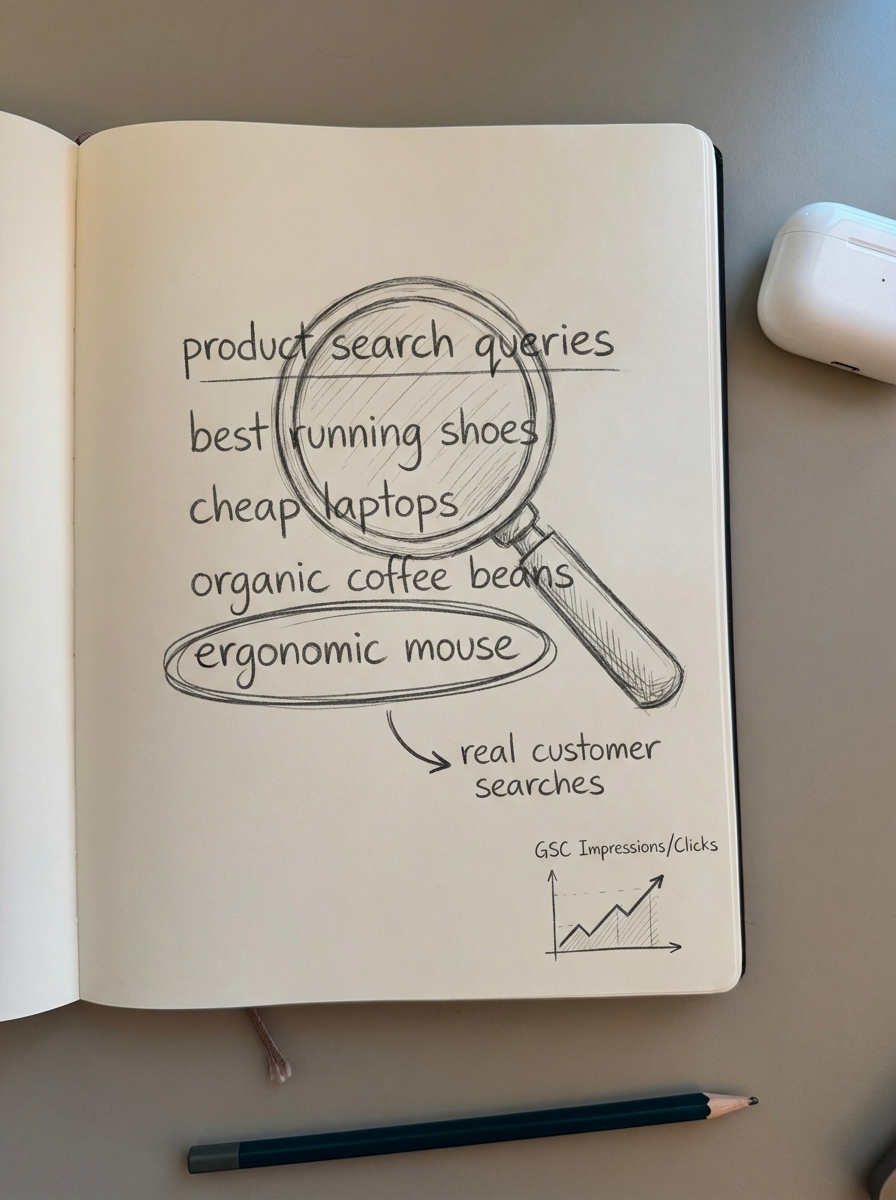 product search queries
best running shoes
cheap laptops
organic coffee beans
ergonomic mouse
real customer
searches
GSC Impressions/Clicks